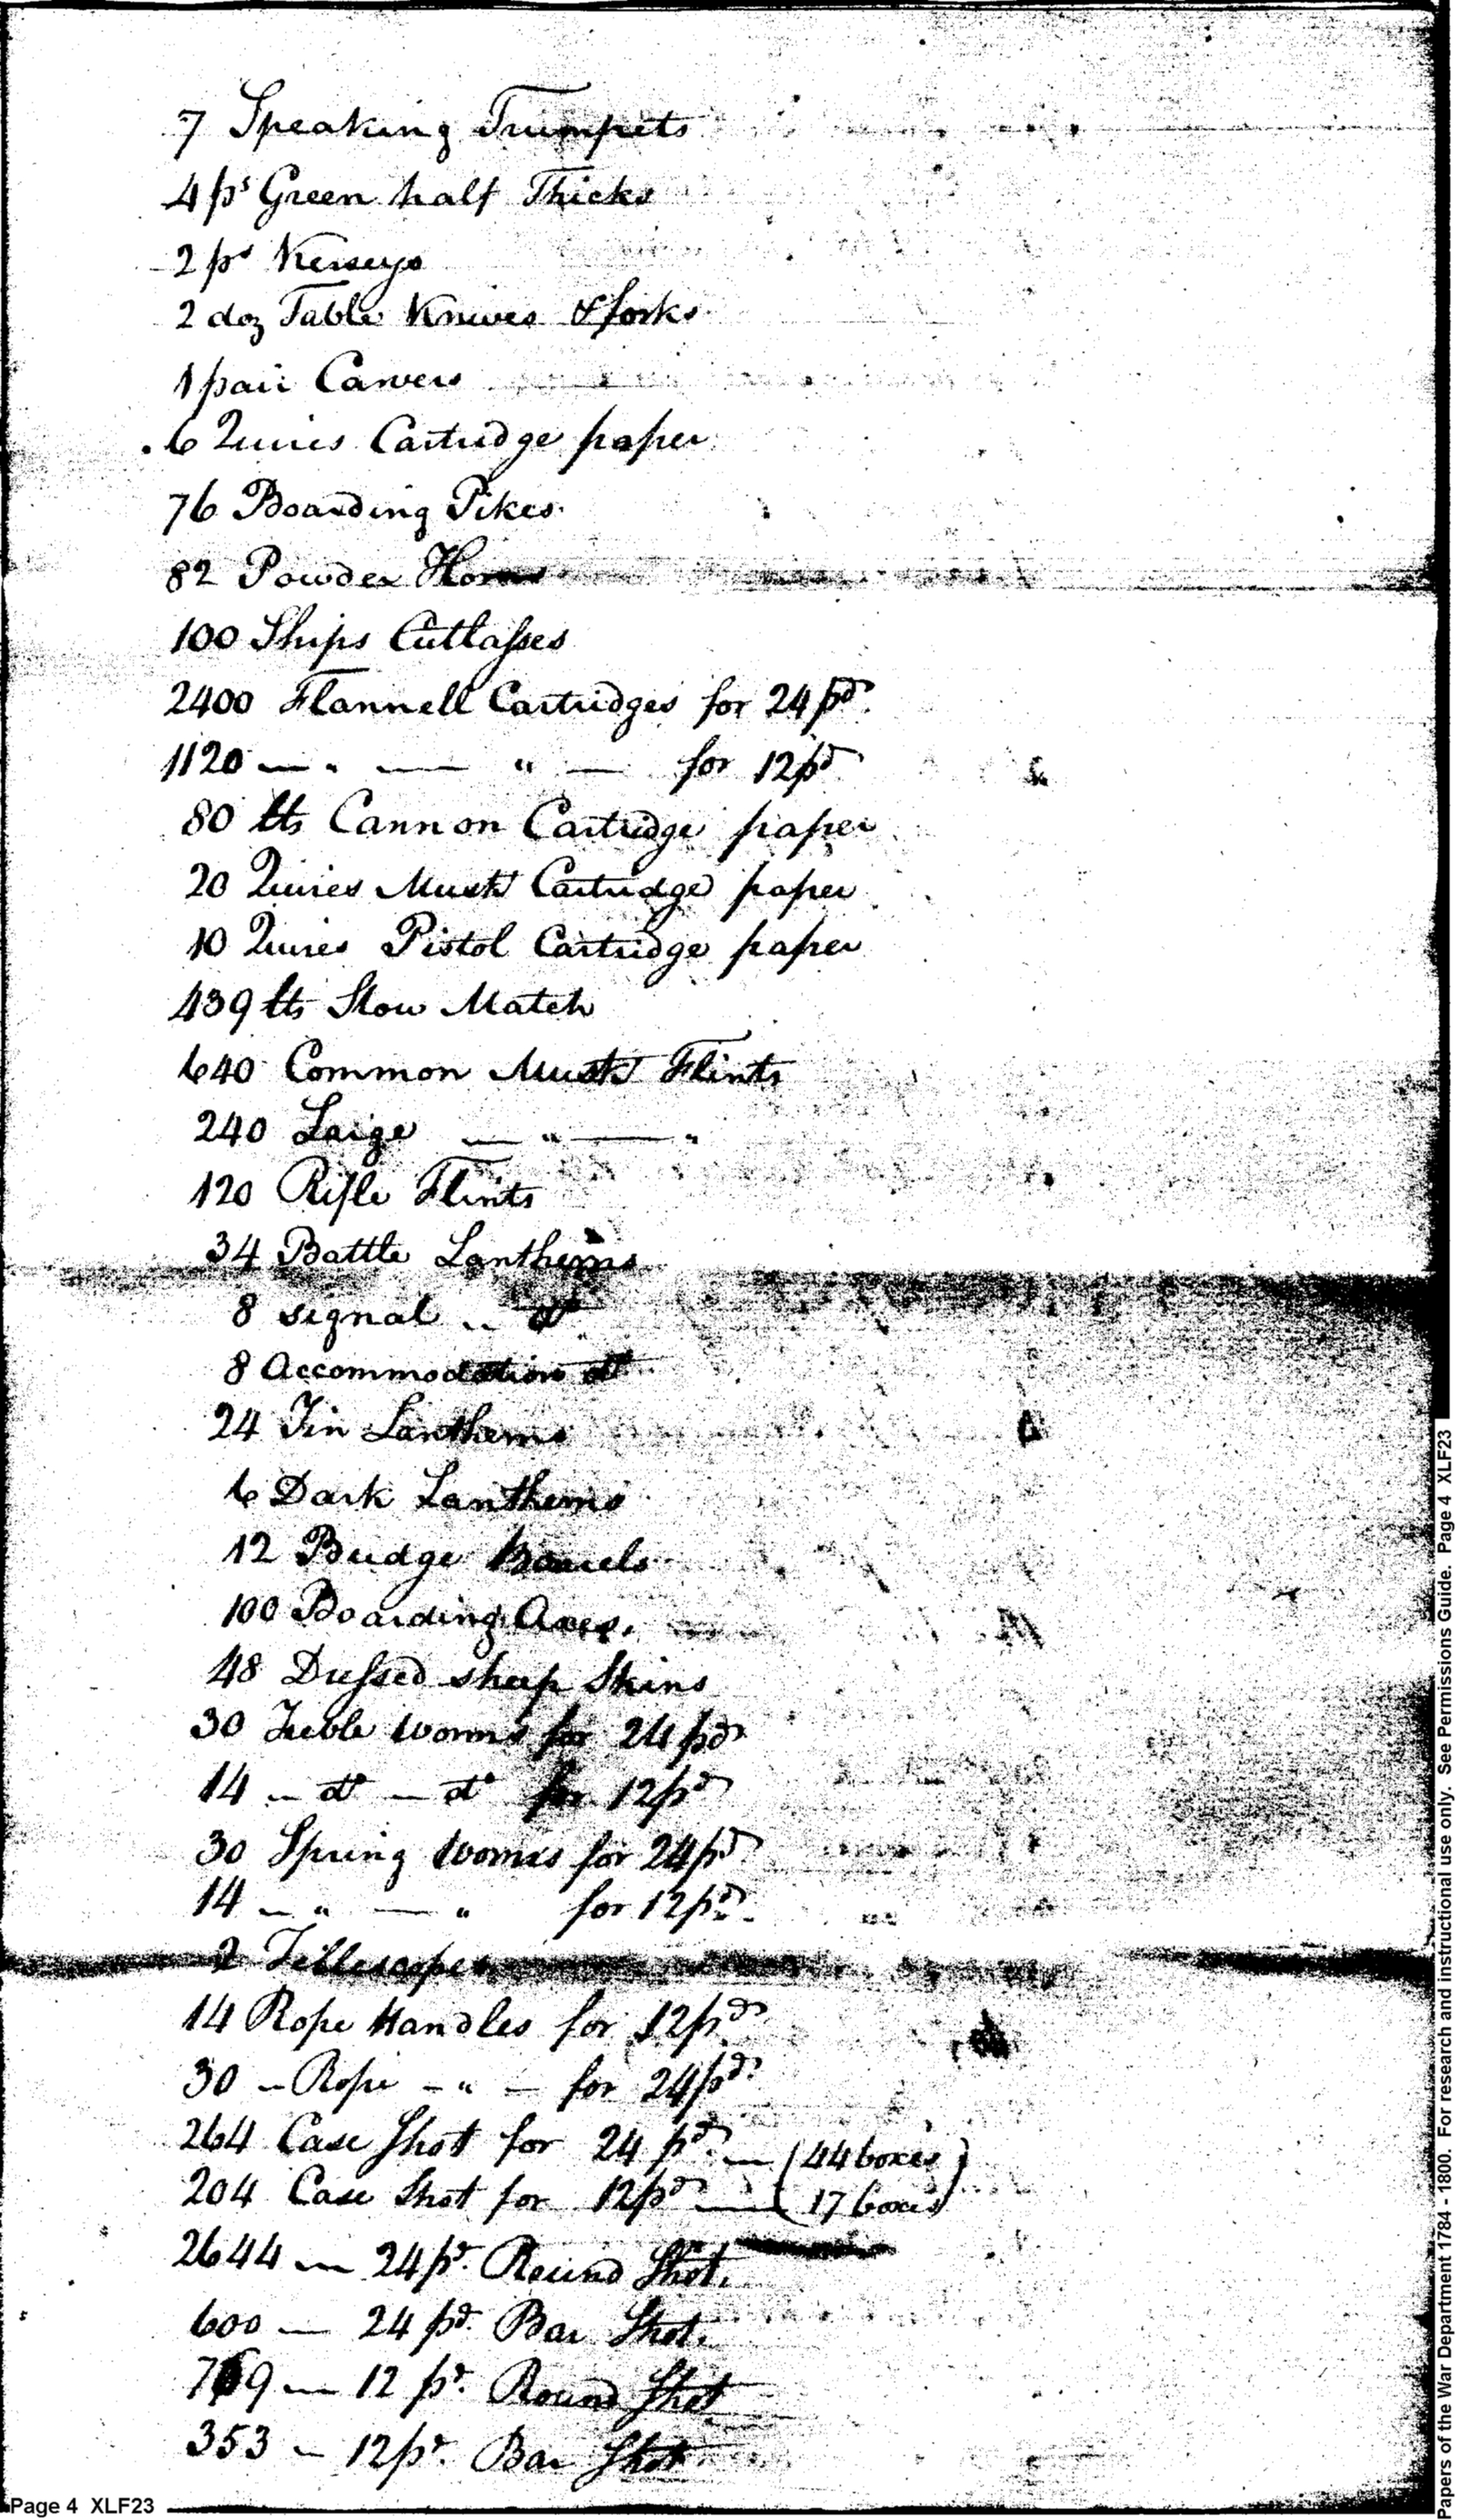 7 Speaking Trumpets
4 ps Green half Thicks
2 ps Kerseys
2 doz Table Knives & forks
1 pair Carvers
6 Quires Cartridge paper
76 Boarding Pikes
82 Powder Horns
100 Ships Cutlasses
2400 Flannell Cartridges for 24 pdr.
1120 — " — " — for 12 pdr
80 lbs Cannon Cartridge paper
20 Quires Muskt Cartridge paper
10 Quires Pistol Cartridge paper
439 lbs Slow Match
640 Common Muskt Flints
240 Large — " — "
120 Rifle Flints
34 Battle Lanthorns
8 signal .. do
8 Accommodation do
24 Tin Lanthorns
6 Dark Lanthorns
12 Budge Barrels
100 Boarding Axes.
48 Dressed sheep Skins
30 Treble Worms for 24 pdr
14 — do — do for 12 pdr
30 Spring Worms for 24 pdr
14 — " — " for 12 pdr.
2 Tellescopes
14 Rope Handles for 12 pdrs
30 — Rope — " — for 24 pdrs
264 Case Shot for 24 pdr. — (44 boxes)
204 Case Shot for 12 pdr — (17 boxes)
2644 — 24 pr. Round Shot.
600 — 24 pd. Bar Shot.
9 — 12 pr. Round Shot
353 — 12 pr. Bar Shot
Page 4 XLF23
Papers of the War Department 1784 - 1800. For research and instructional use only. See Permissions Guide. Page 4 XLF23